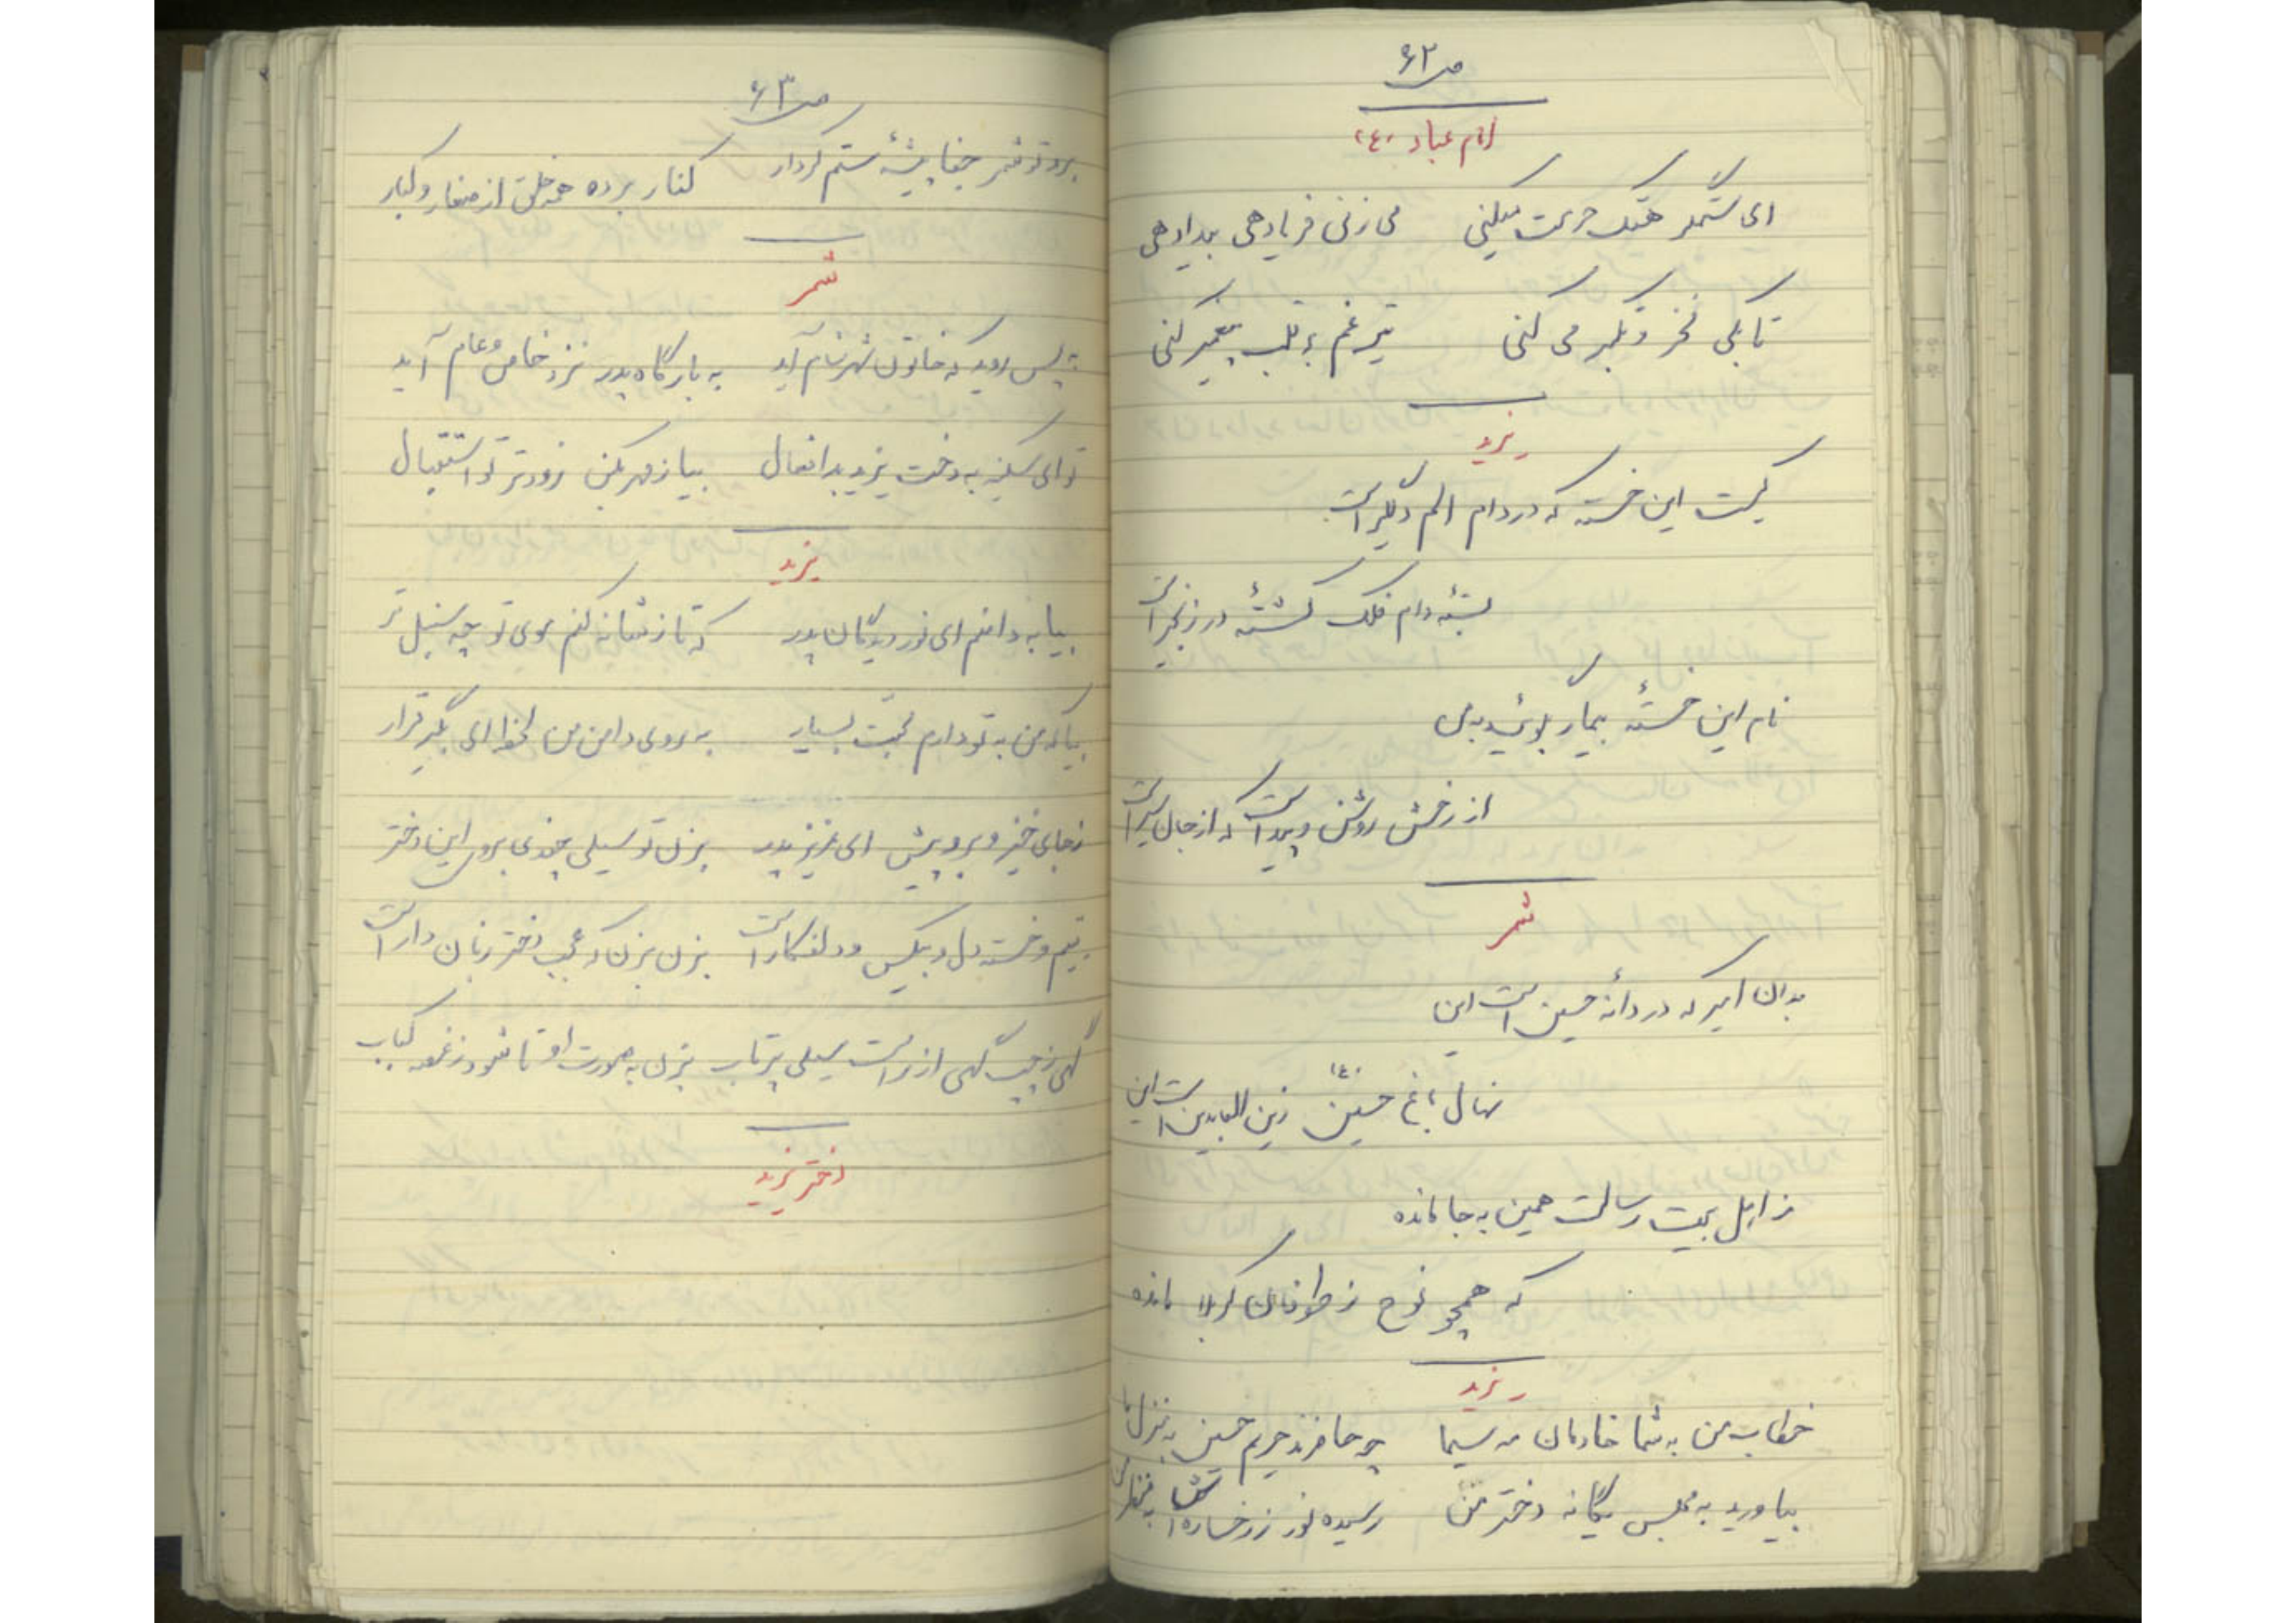 ص ۶۲
امام عباد (ع)
ای ستمگر هتک حرمت میکنی می زنی فریادهی بیدادهی
تا بکی فخر و تکبر می کنی تیر غم به قلب پیغمبر کنی
یزید
کیست این خسته که در دام الم دلگیر است
بستهٔ دام فلک گشتهٔ در زنجیر است
نام این خستهٔ بیمار بگوئید به من
از رخش روشن و پیداست که از جان سیر است
شمر
بدان امیر که دردانهٔ حسین است این
نهال باغ حسین (ع) زین العابدین است این
ز اهل بیت رسالت همین به جا مانده
که همچو نوح ز طوفان کربلا مانده
یزید
خطاب من به شما خادمان مه سیما چو حاضرند حریم حسین به منزل ما
بیاورید به مجلس یگانه دختر من رسیده نور ز رخساره اش به منظر من
ص ۶۳
برو تو شمر جفا پیشهٔ ستم کردار کنار برده همه خلق از صغار و کبار
شمر
به پس روید که خاتون شهر شام آید به بارگاه پدر نزد خاص و عام آید
تو ای سکینه به دخت یزید بد افعال بیا ز مهر بکن زودتر تو استقبال
یزید
بیا به دامنم ای نور دیدگان پدر که تا ز شانه کنم موی تو چه سنبل تر
بیا که من به تو دارم محبت بسیار به روی دامن من لحظه ای بگیر قرار
ز جای خیز و برو پیش ای عزیز پدر بزن تو سیلی چندی بروی این دختر
یتیم و خسته دل و بیکس و دلفکار است بزن بزن که عجب دختر زبان دار است
گهی ز چپ گهی از راست سیلی پرتاب بزن به صورت او تا شود ز غصه کباب
دختر یزید